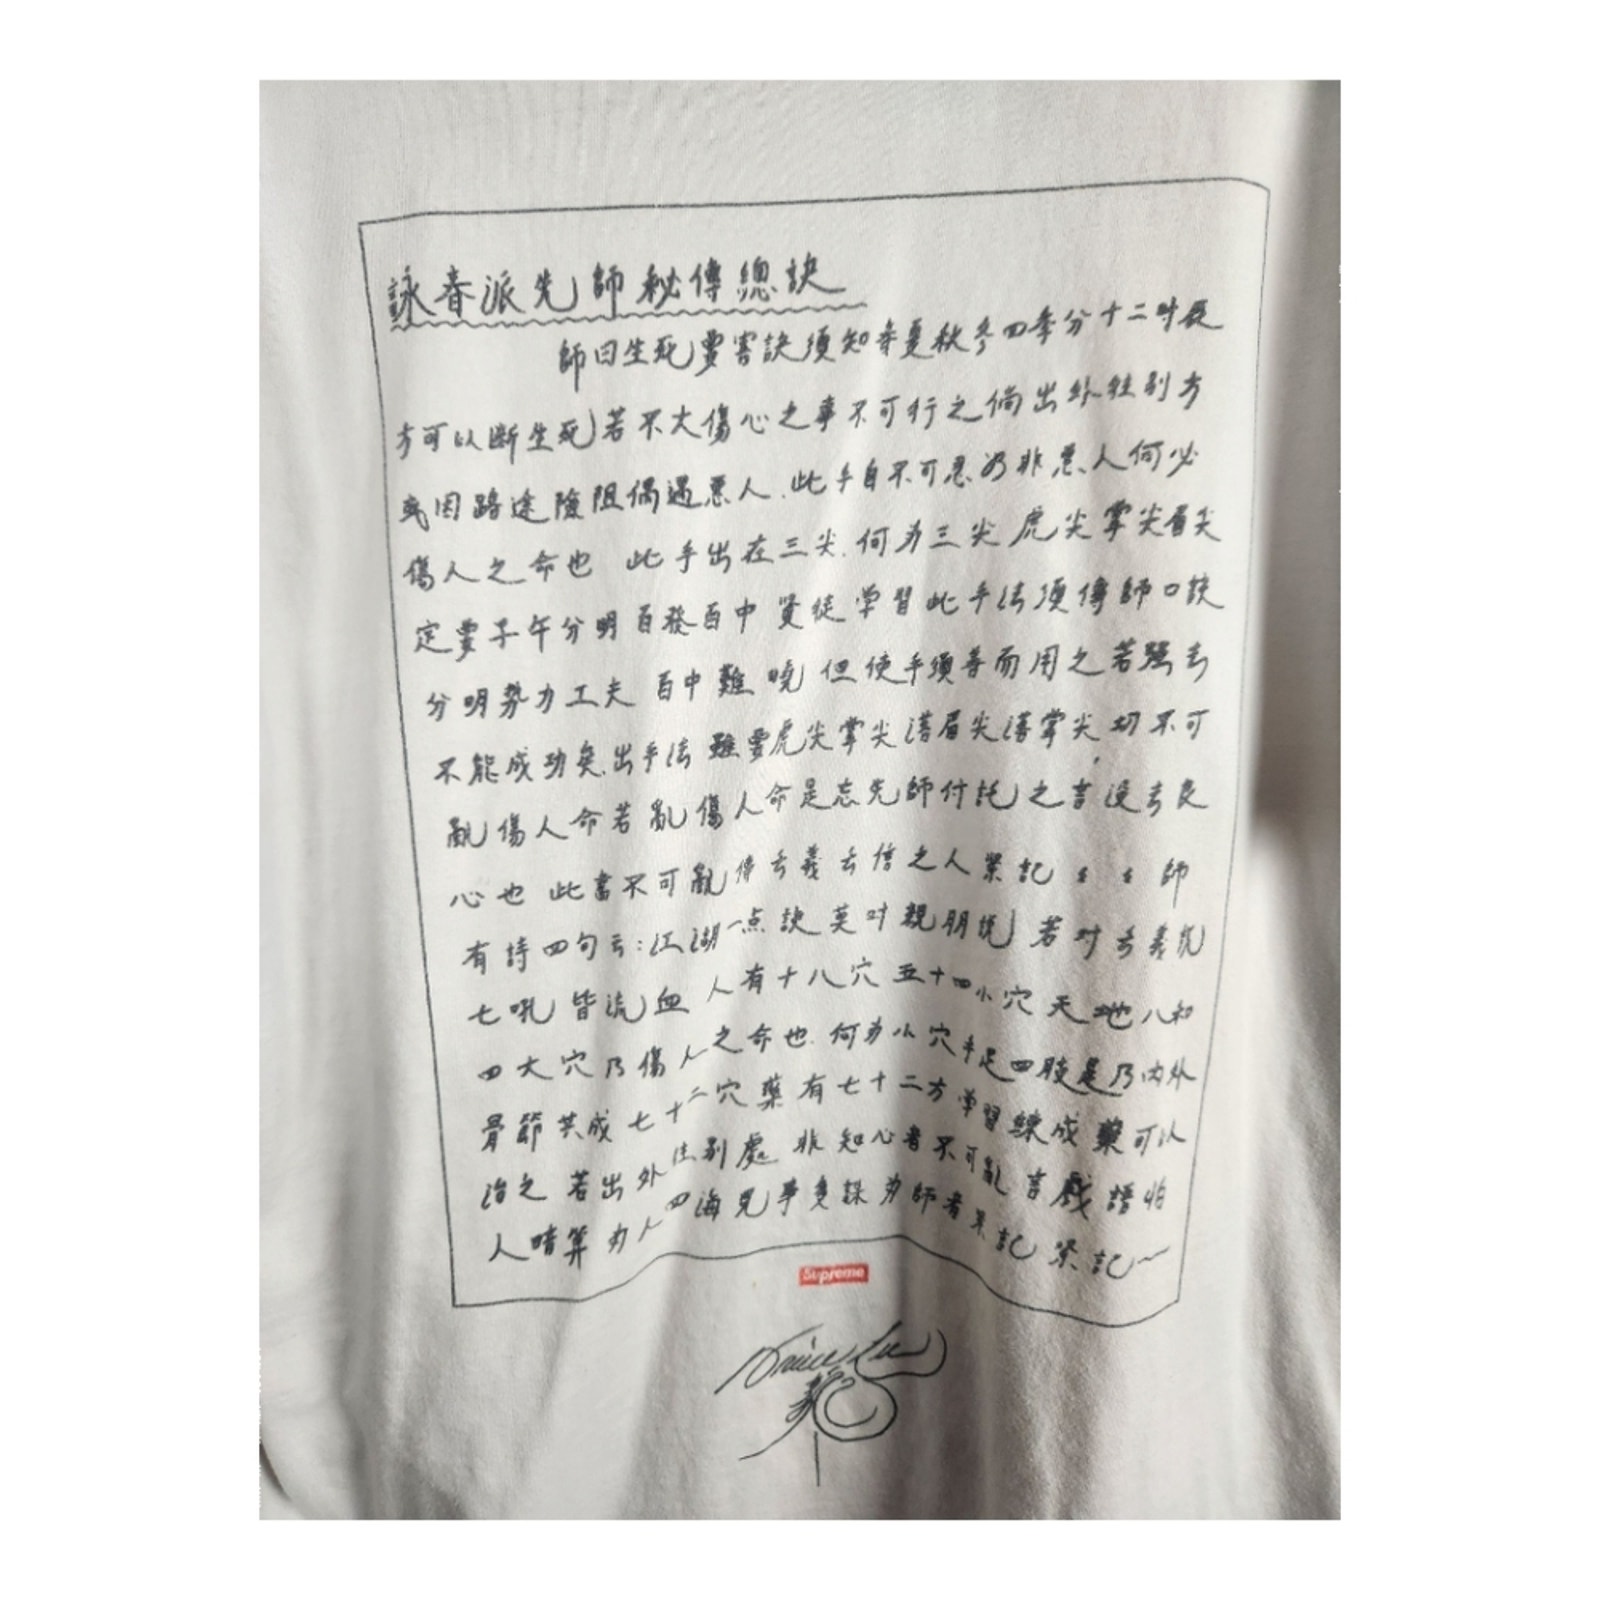 詠春派先師秘傳總訣
師曰生死要害訣須知春夏秋冬四季分十二时辰
方可以断生死若不大傷心之事不可行之倘出外往别方
或因路途險阻偶遇惡人.此手自不可忍乃非惡人何必
傷人之命也 此手出在三尖.何为三尖 虎尖掌尖眉尖
定要子午分明百發百中 賢徒学習此手法須傳師口訣
分明势力工夫 百中難曉 但使手須善而用之若强去
不能成功矣.出手法雖要虎尖掌尖 落眉尖落掌尖.切不可
亂傷人命若亂傷人命是忘先師付託之言没去良
心也 此書不可亂傳去義去信之人緊記 師
有詩四句云:江湖一点訣莫对親朋説 若对去義説
七吼皆流血 人有十八穴五十四小穴天地人和
四大穴乃傷人之命也.何为小穴手足四肢是乃内外
骨節共成七十二穴藥有七十二方学習練成藥可以
治之 若出外往别處 非知心者不可亂言戲語怕
人暗算 为人四海見事多謀为師者緊記緊記
Supreme
Bruce Lee